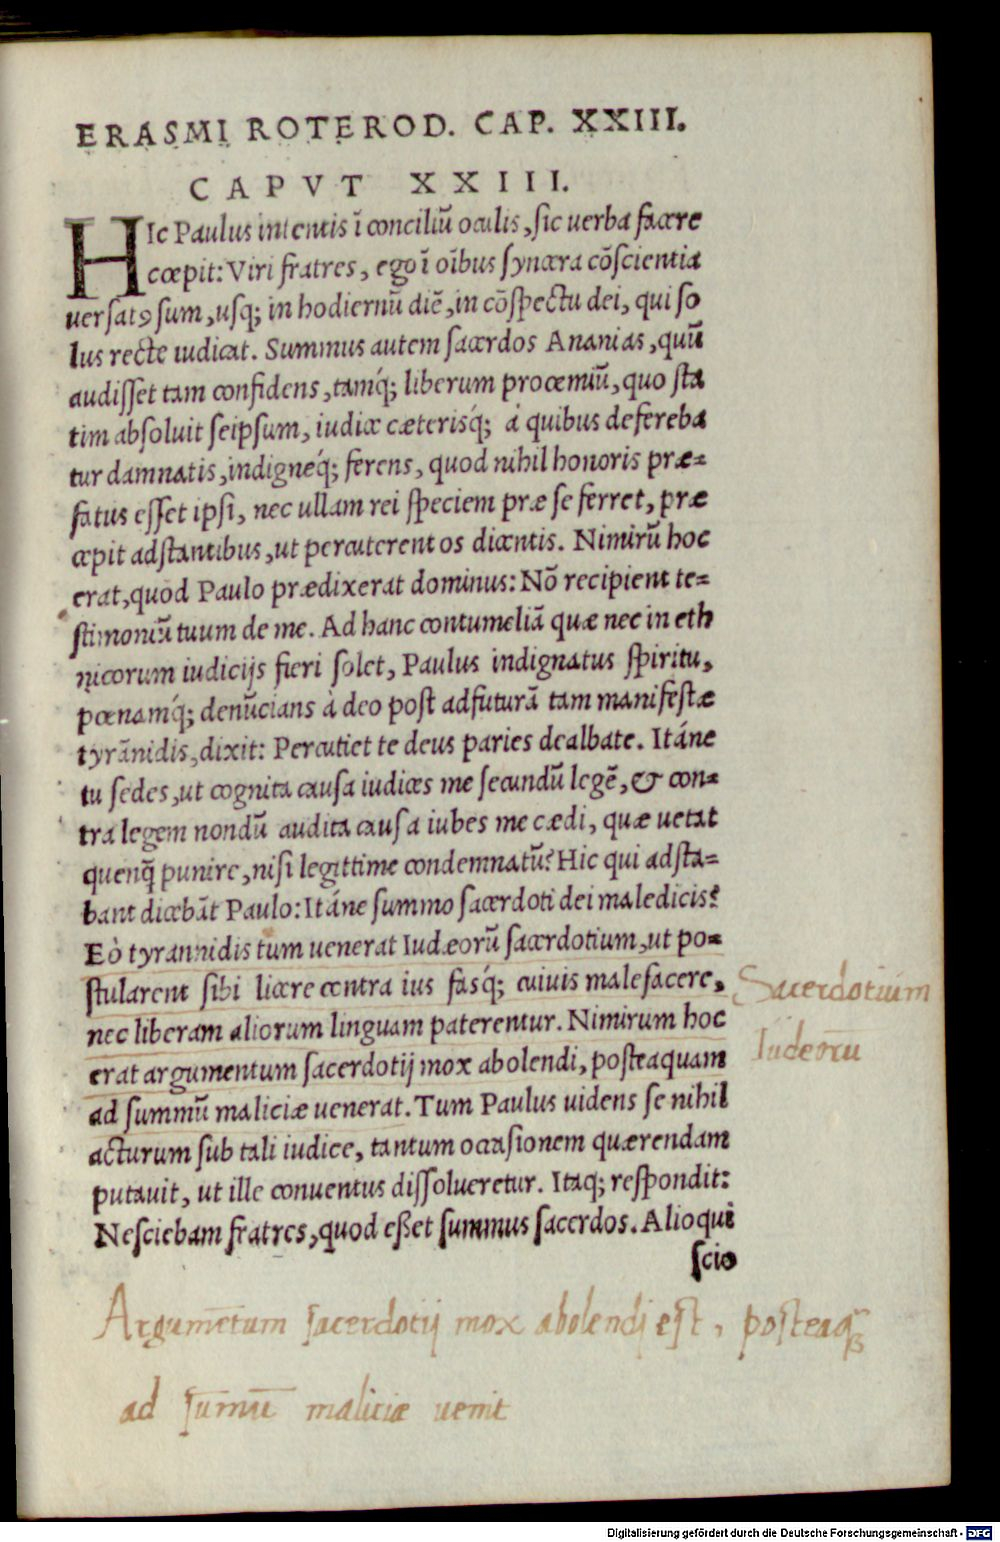 ERASMI ROTEROD. CAP. XXIII.
CAPVT XXIII.
HIc Paulus intentis ī conciliū oculis, sic uerba facere
cœpit: Viri fratres, ego ī oībus syncera cōscientia
uersatꝰ sum, usq; in hodiernū diē, in cōspectu dei, qui so
lus recte iudicat. Summus autem sacerdos Ananias, quū
audisset tam confidens, tamq́; liberum proœmiū, quo sta
tim absoluit seipsum, iudice cæterisq́; á quibus defereba
tur damnatis, indigneq́; ferens, quod nihil honoris præ=
fatus esset ipsi, nec ullam rei speciem præ se ferret, præ
cepit adstantibus, ut percuterent os dicentis. Nimirū hoc
erat, quod Paulo prædixerat dominus: Nō recipient te=
stimoniū tuum de me. Ad hanc contumeliā quæ nec in eth
nicorum iudicijs fieri solet, Paulus indignatus spiritu,
pœnamq́; denūcians à deo post adfuturā tam manifestæ
tyrānidis, dixit: Percutiet te deus paries dealbate. Itáne
tu sedes, ut cognita causa iudices me secundū legē, & con=
tra legem nondū audita causa iubes me cædi, quæ uetat
quenq̄ punire, nisi legittime condemnatū? Hic qui adsta=
bant dicebāt Paulo: Itáne summo sacerdoti dei maledicis?
Eò tyrannidis tum uenerat Iudæorū sacerdotium, ut po=
stularent sibi licere contra ius fasq́; cuiuis malefacere,
nec liberam aliorum linguam paterentur. Nimirum hoc
erat argumentum sacerdotij mox abolendi, posteaquam
ad summū maliciæ uenerat. Tum Paulus uidens se nihil
acturum sub tali iudice, tantum occasionem quærendam
putauit, ut ille conuentus dissolueretur. Itaq; respondit:
Nesciebam fratres, quod eßet summus sacerdos. Alioqui
scio
Sacerdotium
Iudeorū
Argumētum sacerdotij mox abolendj est, posteaqꝫ
ad sūmū maliciæ uenit
Digitalisierung gefördert durch die Deutsche Forschungsgemeinschaft - DFG